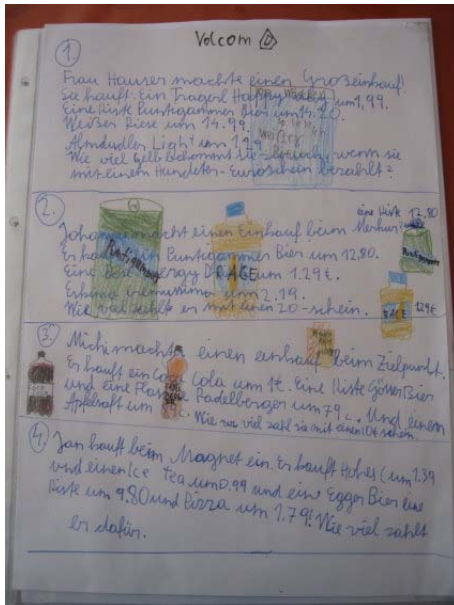 Volcom
1.
Frau Hauser machte einen Großeinkauf!
Sie kauft: Ein Tragerl Happy Day um 1,99.
Eine Kiste Puntigammer Bier um 14.20.
Weißer Riese um 14.99.
Almdudler Light um 1.29
Wie viel Gelb bekommt sie zurück, wenn sie
mit einem Hunderter-Euroschein bezahlt?
2.
Johannes macht einen Einkauf beim Merkur:
eine Kiste 12.80
Er kauft ein Puntigammer Bier um 12.80.
Eine Dose Energy DRAGE um 1.29€.
um 2.19.
Wie viel zahlt er mit einen 20-schein.
RAGE 1.29€
3.
Michi macht einen einkauf beim Zielpunkt.
Er kauft ein Coca Cola um 1€. Eine Kiste Gösser Bier
und eine Flasche Radelberger um 79 c. Und einen
Apfelsaft um c. Wie viel zahl sie mit einen 10€ schein.
4.
Jan kauft beim Magnet ein. Er kauft um 1.39
und einen Ice Tea um 0.99 und eine Egger Bier eine
Kiste um 9.80 und Pizza um 1.79! Wie viel zahlt
er dafür.